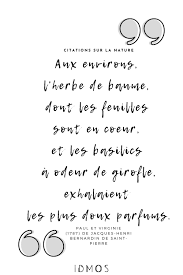 CITATIONS SUR LA NATURE
Aux environs,
l'herbe de baume,
dont les feuilles
sont en coeur,
et les basilics
à odeur de girofle,
exhalaient
les plus doux parfums.
PAUL ET VIRGINIE
(1787) DE JACQUES-HENRI
BERNARDIN DE SAINT-
PIERRE
IDMOS